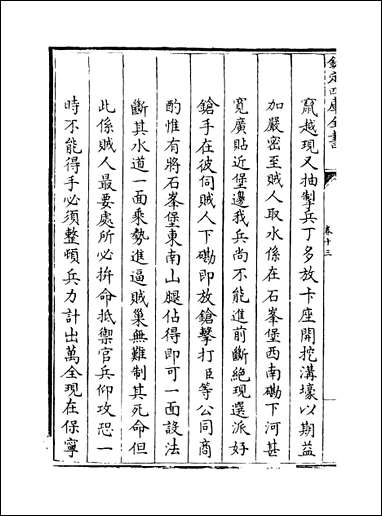 欽定四庫全書
卷十三
竄越現又抽掣兵丁多放卡座開挖溝壕以期益
加嚴密至賊人取水係在石峯堡西南磡下河甚
寬廣貼近堡邊我兵尚不能進前斷絶現選派好
鎗手在彼伺賊人下磡即放鎗擊打臣等公同商
酌惟有將石峯堡東南山腿佔得即可一面設法
斷其水道一面乘勢進逼賊巢無難制其死命但
此係賊人最要處所必拚命抵禦官兵仰攻恐一
時不能得手必須整頓兵力計出萬全現在保寧